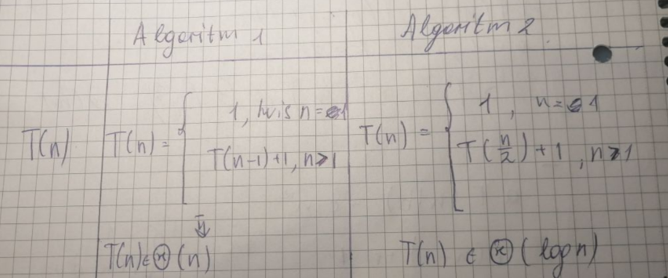 Algoritm 1
Algoritm 2
T(n)
T(n) = { 1, hvis n=1
T(n-1)+1, n>1
T(n) ∈ Θ(n)
T(n) = { 1, n=1
T(n/2)+1, n>1
T(n) ∈ Θ(log n)